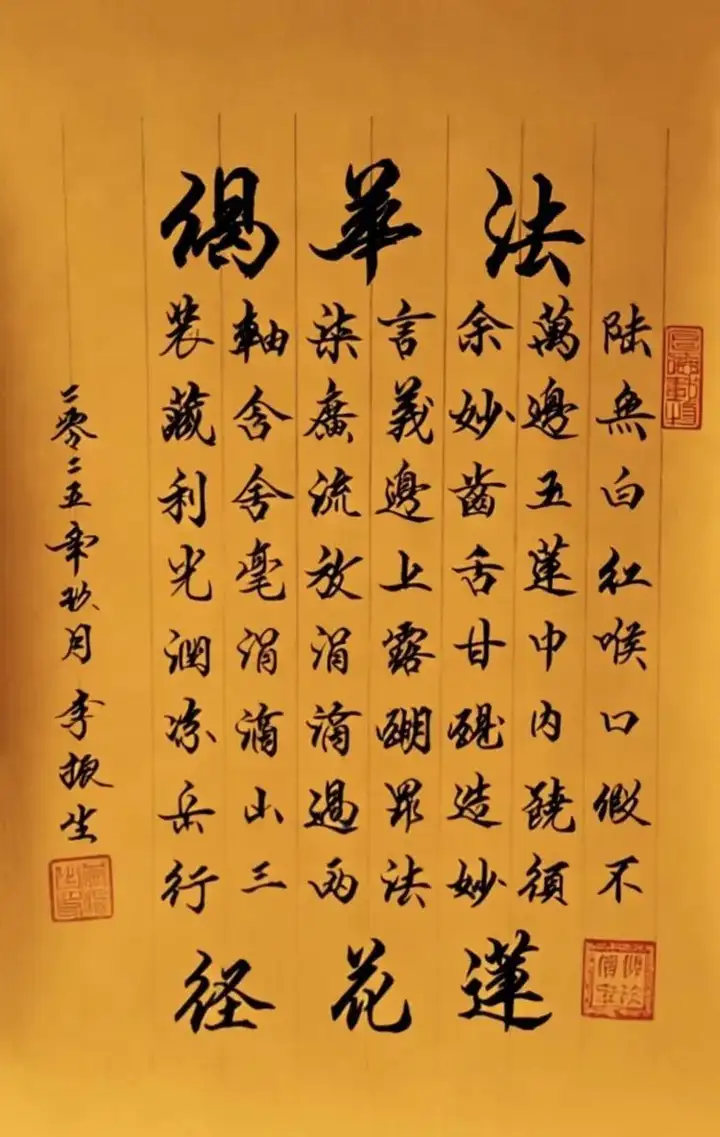 法華偈
陸萬余言柒軸裝
無邊妙義廣含藏
白五齒邊流舍利
紅蓮舌上放毫光
喉中甘露涓涓潤
口内醍醐滴滴凉
假饒造罪過山岳
不須妙法两三行
蓮花径
二零二五年玖月 李振生